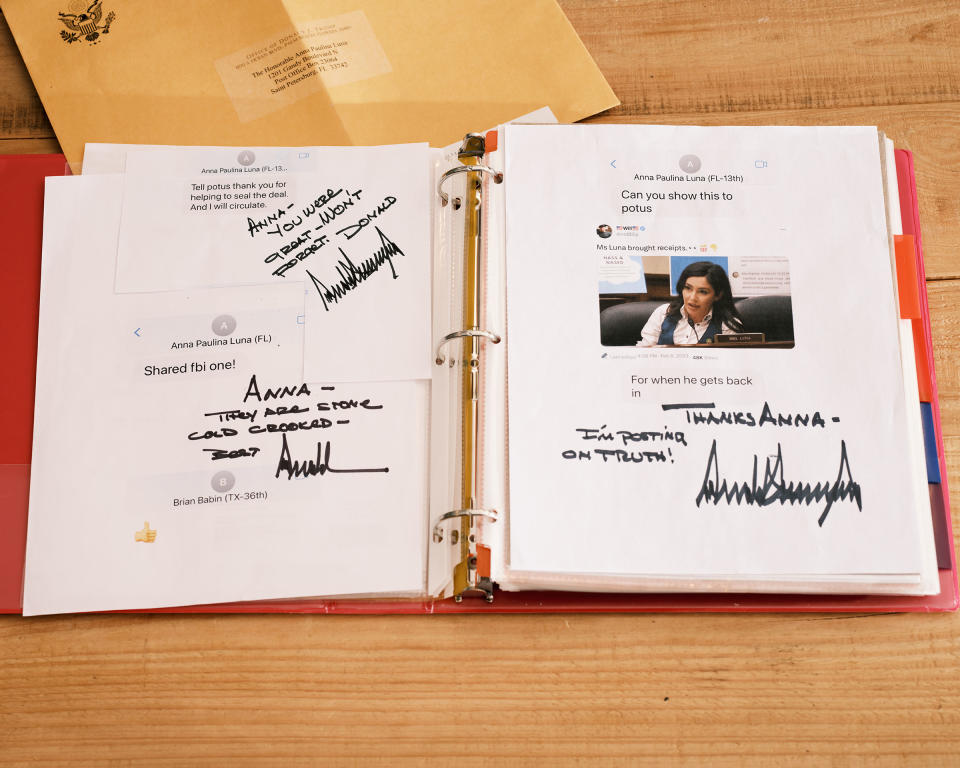 OFFICE OF DONALD J. TRUMP
The Honorable Anna Paulina Luna
1201 Gandy Boulevard N
Post Office Box 23064
Saint Petersburg, FL 33742
A
Anna Paulina Luna (FL-13...
Tell potus thank you for
helping to seal the deal.
And I will circulate.
ANNA-
YOU WERE
GREAT-WON'T
FORGET. DONALD
A
Anna Paulina Luna (FL)
Shared fbi one!
ANNA-
THEY ARE STONE
COLD CROOKED-
BEST
B
Brian Babin (TX-36th)
A
Anna Paulina Luna (FL-13th)
Can you show this to
potus
Ms Luna brought receipts.
MRS. LUNA
For when he gets back
in
THANKS ANNA-
I'M POSTING
ON TRUTH!